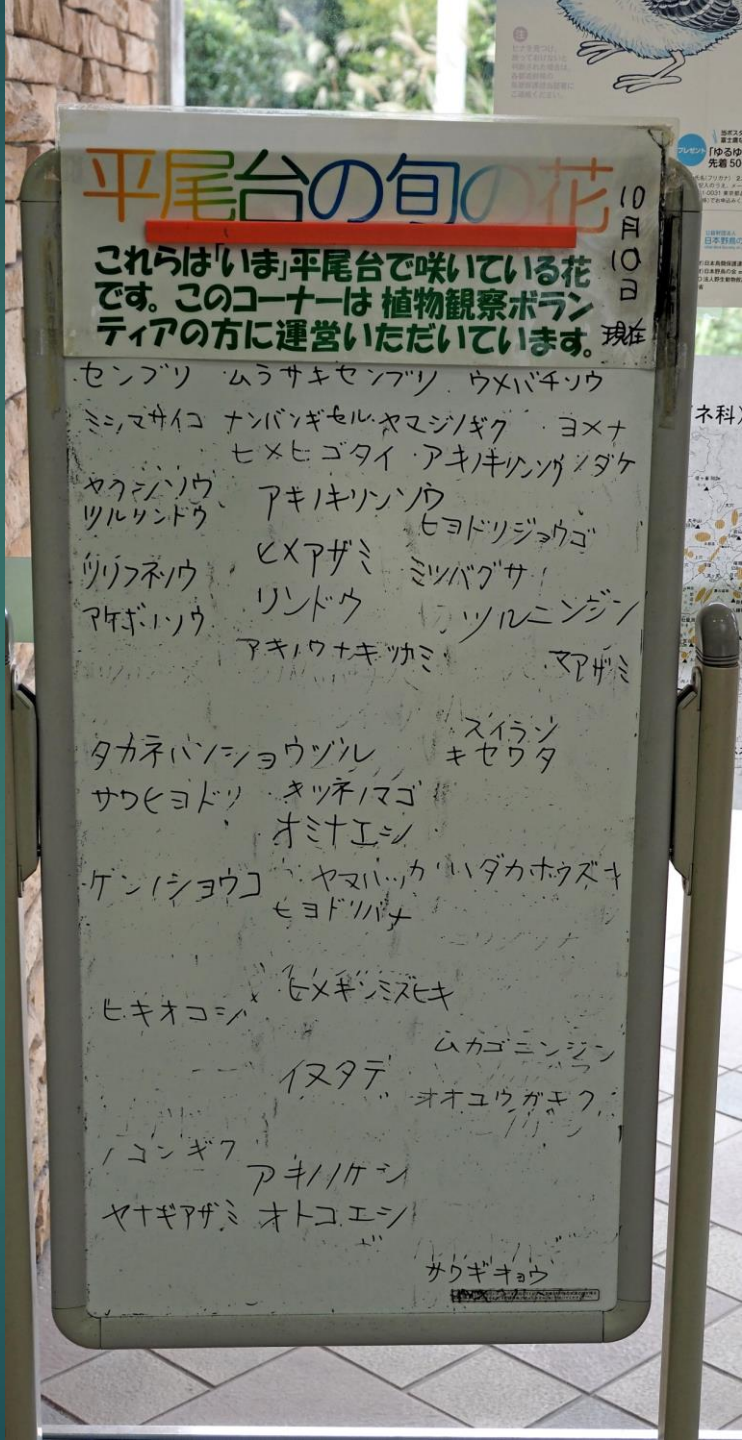 平尾台の旬の花
10月10日現在
これらは「いま」平尾台で咲いている花
です。このコーナーは 植物観察ボラン
ティアの方に運営いただいています。
センブリ ムラサキセンブリ ウメバチソウ
ミシマサイコ ナンバンギセル ヤマジノギク ヨメナ
ヒメヒゴタイ アキノキリンソウ ノダケ
ヤクシソウ アキノキリンソウ
ツルリンドウ ヒヨドリジョウゴ
ツリフネソウ ヒメアザミ ミツバグサ
アケボノソウ リンドウ ツルニンジン
アキノウナギツカミ マアザミ
スイラン
タカネハンショウヅル キセワタ
サワヒヨドリ キツネノマゴ
オミナエシ
ゲンノショウコ ヤマハッカ ハダカホウズキ
ヒヨドリバナ
ヒキオコシ ヒメキンミズヒキ
ムカゴニンジン
イヌタデ
オオユウガギク
ノコンギク
アキノノゲシ
ヤナギアザミ オトコエシ
サワギキョウ
プレゼント
「ゆるゆ
先着50
日本野鳥の
ネ科)